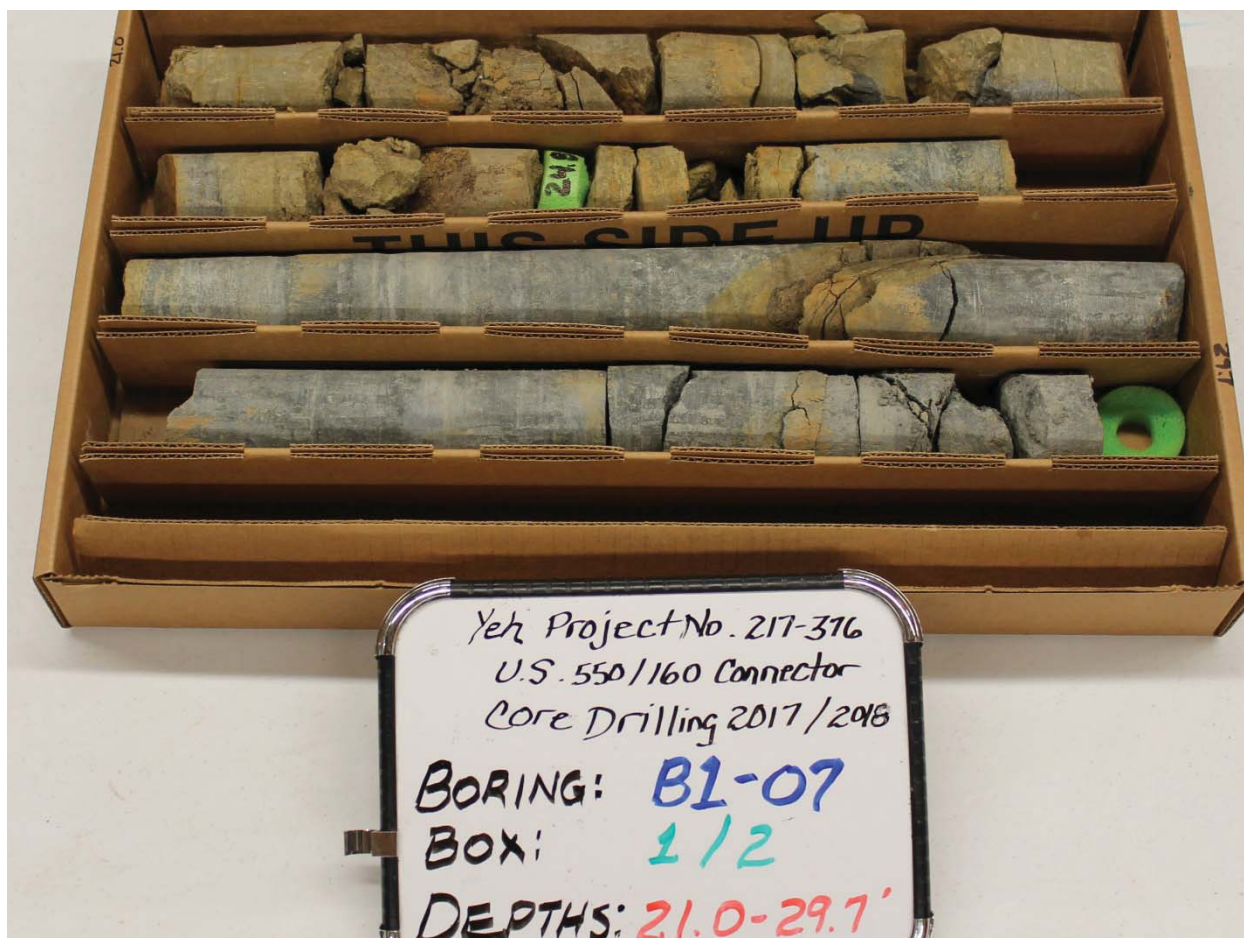 21.0
24.8
THIS SIDE UP
29.7
Yeh Project No. 217-376
U.S. 550/160 Connector
Core Drilling 2017/2018
BORING: B1-07
BOX: 1/2
DEPTHS: 21.0-29.7'